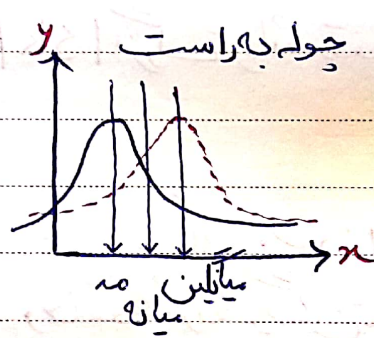 چوله به راست
y
x
مد میانگین
میانه